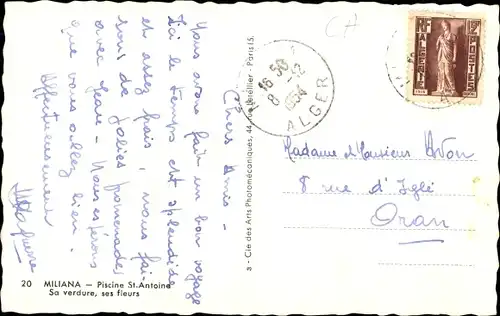 Chers Amis -
Nous avons fait un bon voyage
Ici le temps est splendide
et assez frais, nous fai-
sons de jolies promenades
avec Jeane - Nous espérons
que vous allez bien.
Affectueusement
CA
ALGER
1954
RF
ALGERIE
Madame & Monsieur
8 rue d'Igli
Oran
a - Cie des Arts Photomécaniques, 44, rue Letellier - Paris 15.
20 MILIANA — Piscine St. Antoine
Sa verdure, ses fleurs